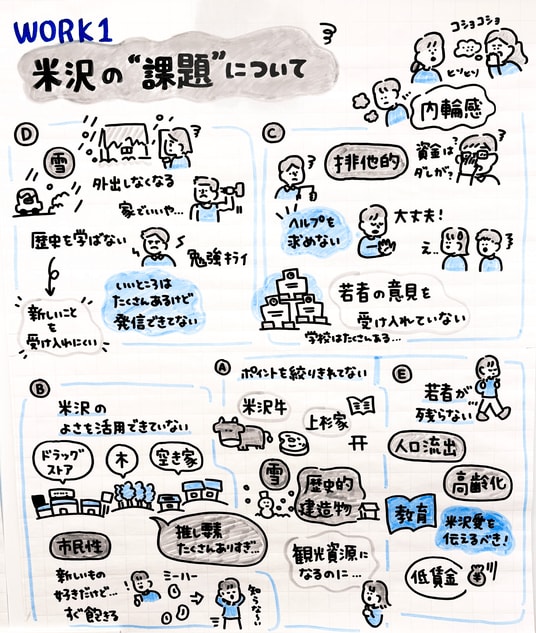 WORK1
米沢の“課題”について
コショコショ
ヒソヒソ
内輪感
D
雪
外出しなくなる
家でいいや…
歴史を学ばない
勉強キライ
新しいこと
を
受け入れにくい
いいところは
たくさんあるけど
発信できてない
C
排他的
資金は
ダレが?
ヘルプを
求めない
大丈夫!
え…
若者の意見を
受け入れていない
学校はたくさんある…
B
米沢の
よさを活用できていない
ドラッグ
ストア
木
空き家
市民性
推し要素
たくさんありすぎ…
新しいもの
好きだけど…
すぐ飽きる
ミーハー
知らな〜い
A
ポイントを絞りきれてない
米沢牛
上杉家
雪
歴史的
建造物
観光資源に
なるのに…
E
若者が
残らない
人口流出
高齢化
教育
米沢愛を
伝えるべき!
低賃金
¥